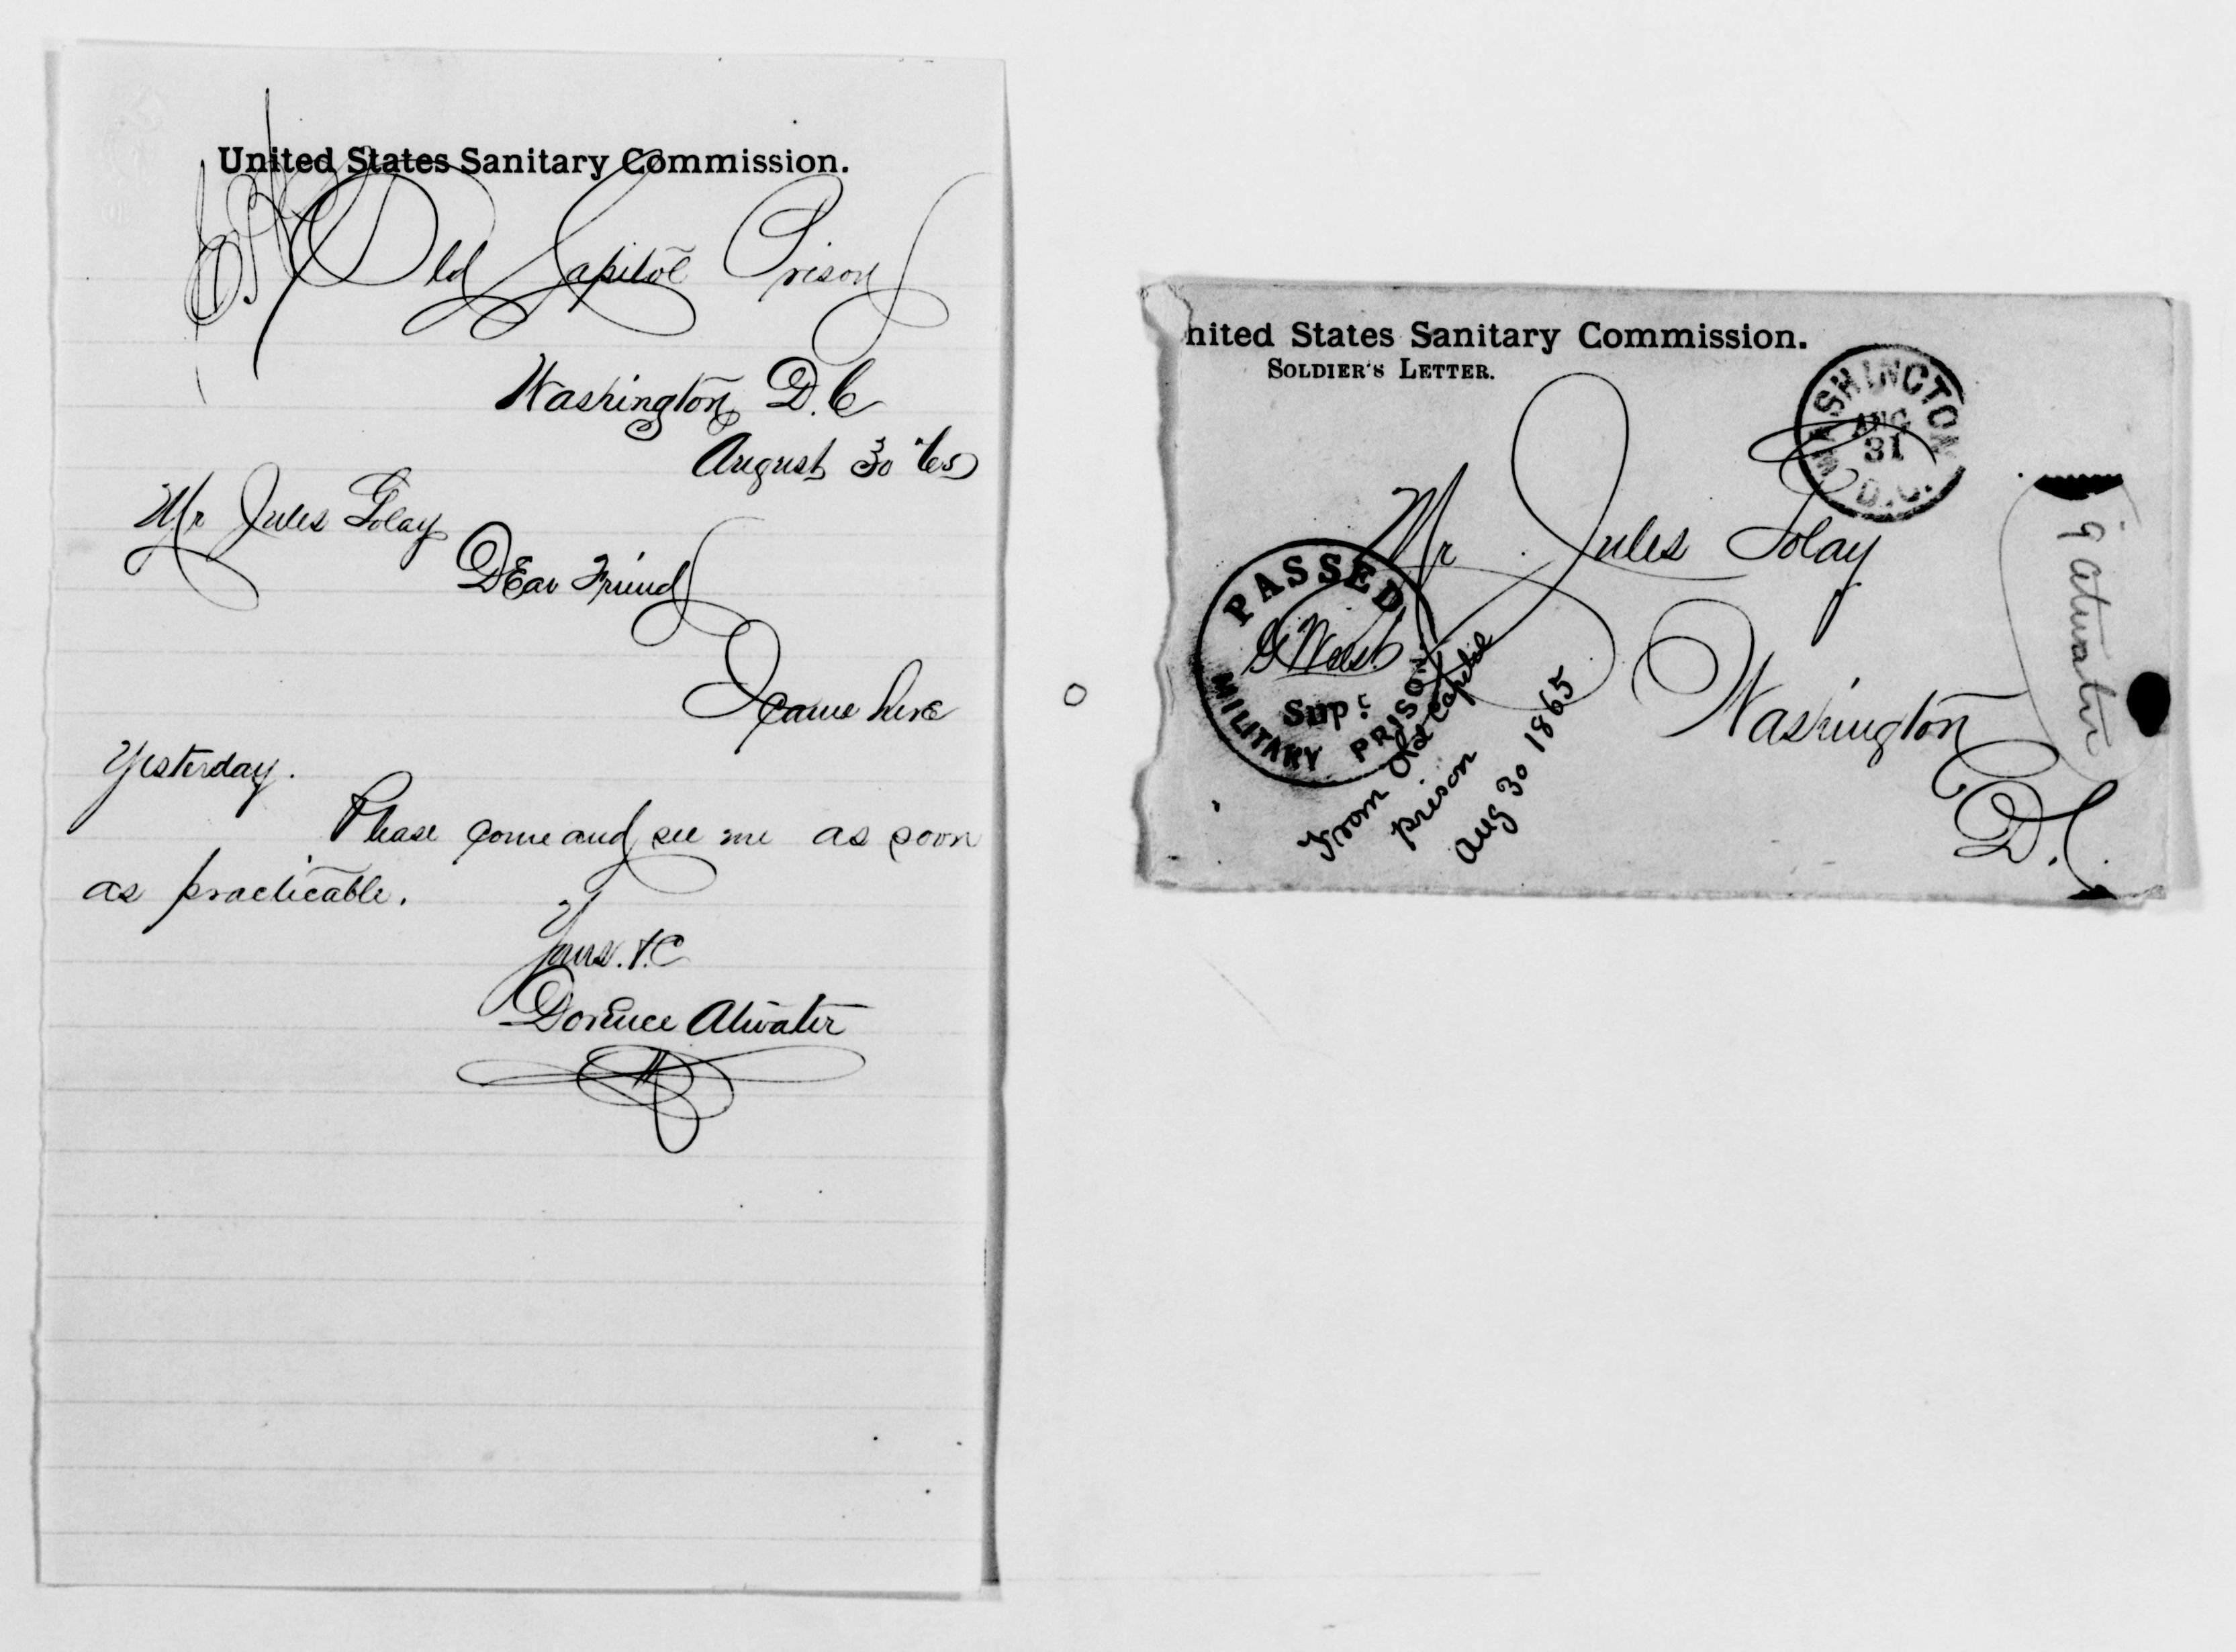 United States Sanitary Commission.
Old Capitol Prison
Washington D.C
August 30 '65
Mr Jules Golay
Dear Friend
I came here
Yesterday.
Please come and see me as soon
as practicable.
Yours. &C
Dorence Atwater
nited States Sanitary Commission.
SOLDIER'S LETTER.
WASHINGTON
AUG
31
D.C.
Mr Jules Golay
Washington
D.C.
PASSED
Supt
MILITARY PRISON
From Old Capitol
prison
Aug 30 1865
Atwater